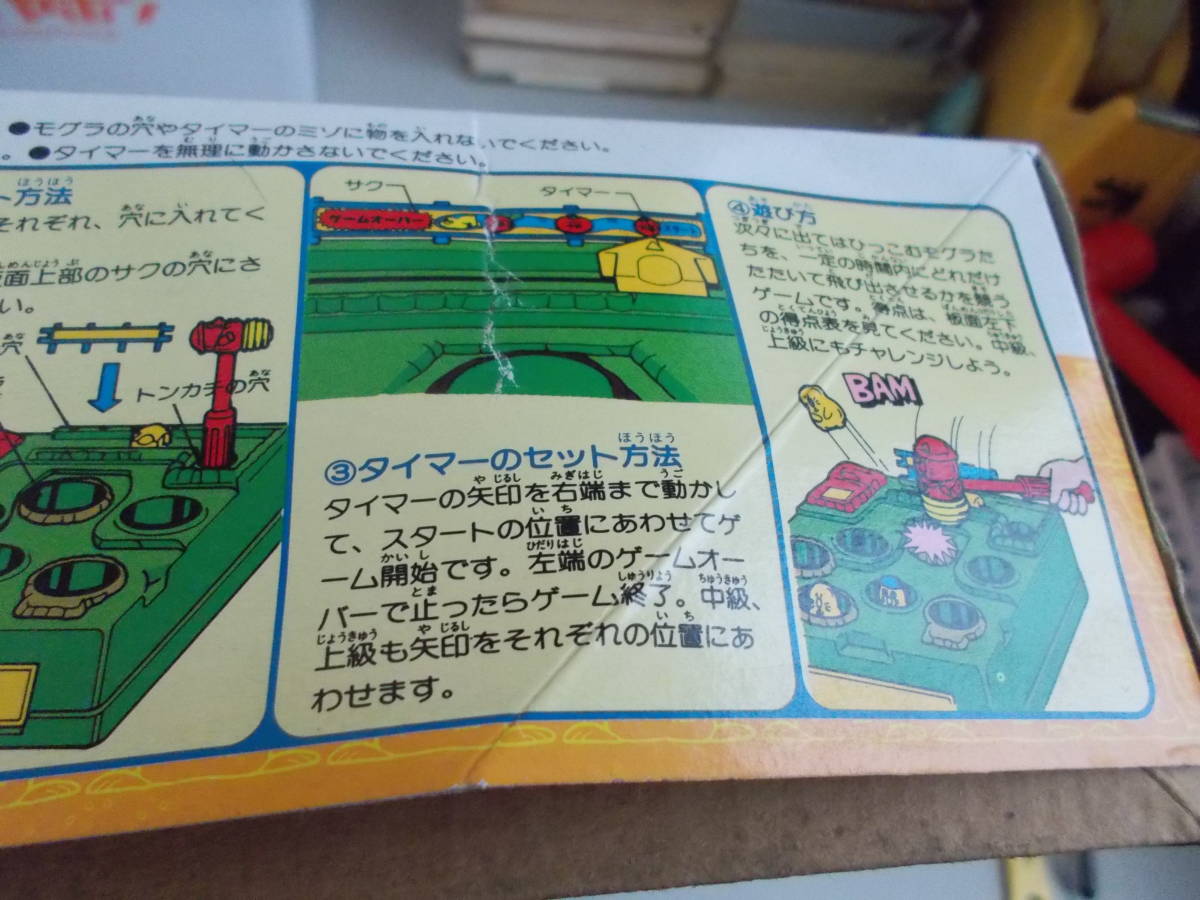 ●モグラの穴やタイマーのミゾに物を入れないでください。
。●タイマーを無理に動かさないでください。
ト方法
それぞれ、穴に入れてく
面上部のサクの穴にさ
い。
穴
トンカチの穴
サク
タイマー
ゲームオーバー
スタート
③タイマーのセット方法
タイマーの矢印を右端まで動かし
て、スタートの位置にあわせてゲ
ーム開始です。左端のゲームオー
バーで止ったらゲーム終了。中級、
上級も矢印をそれぞれの位置にあ
わせます。
④遊び方
次々に出てはひっこむモグラた
ちを、一定の時間内にどれだけ
たたいて飛び出させるかを競う
ゲームです。得点は、板面左下
の得点表を見てください。中級、
上級にもチャレンジしよう。
BAM